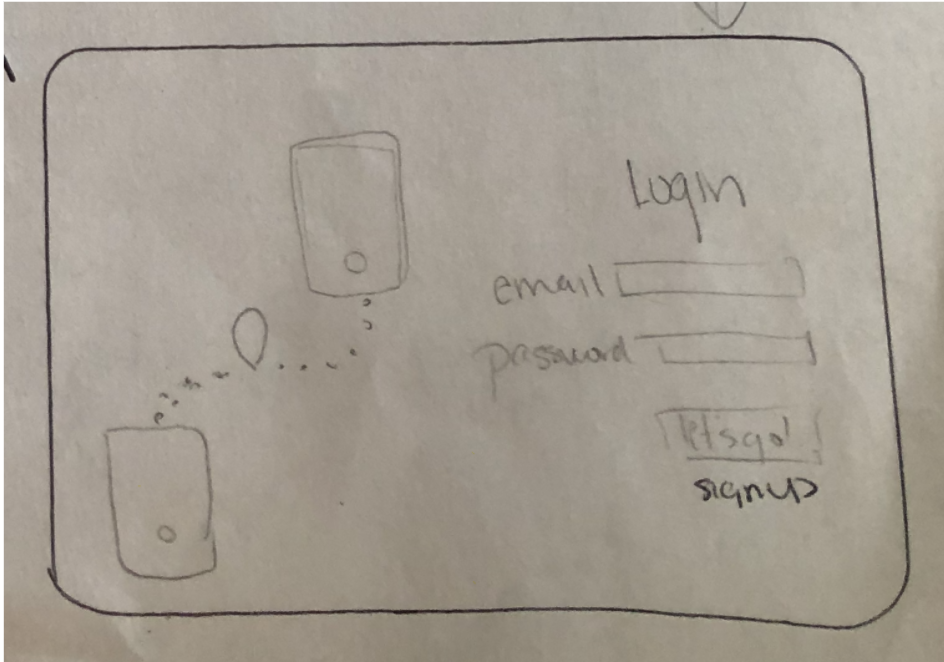 Login
email
password
let's go!
signup